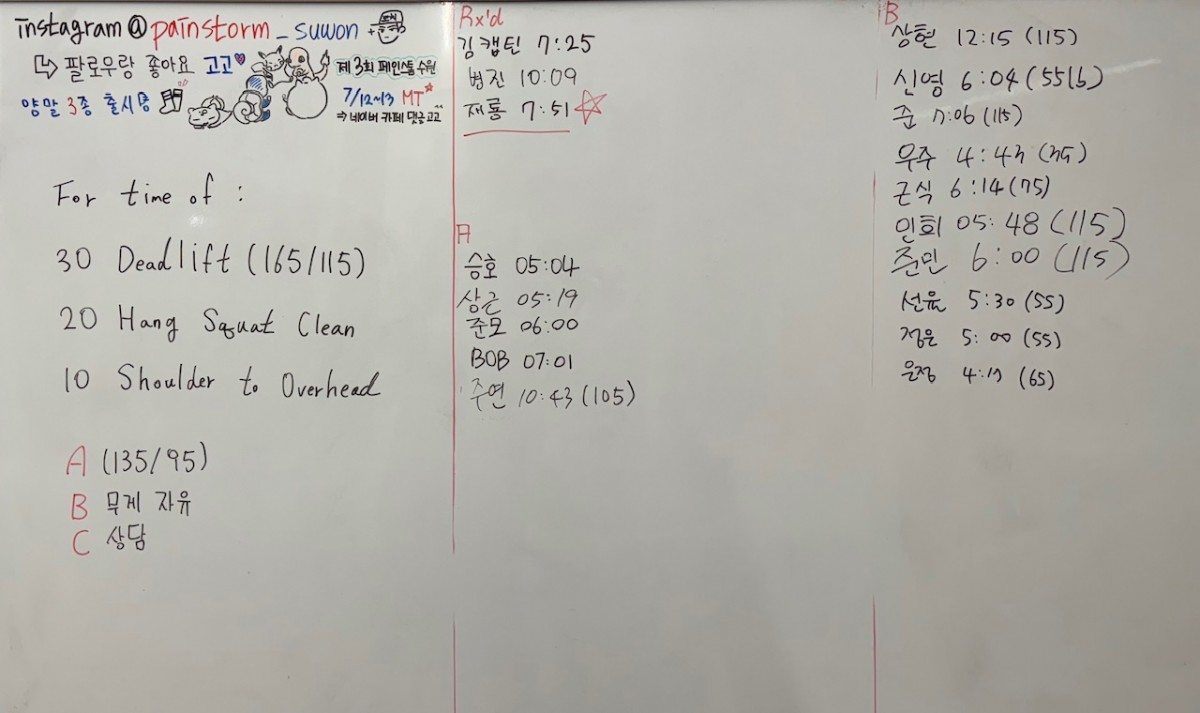 instagram@painstorm_suwon
↳ 팔로우랑 좋아요 고고♥
양말 3종 출시중
제 3회 페인스톰 수원
7/12~13 MT☆
⇒ 네이버 카페 댓글 고고
For time of :
30 Deadlift (165/115)
20 Hang Squat Clean
10 Shoulder to Overhead
A (135/95)
B 무게 자유
C 상담
Rx'd
김캡틴 7:25
범진 10:09
재룡 7:51 ☆
A
승호 05:04
상근 05:19
준모 06:00
BOB 07:01
주연 10:43 (105)
B
상현 12:15 (115)
신영 6:04 (55lb)
준 7:06 (115)
우주 4:43 (35)
근식 6:14 (75)
인회 05:48 (115)
준민 6:00 (115)
선율 5:30 (55)
정운 5:00 (55)
은정 4:17 (65)